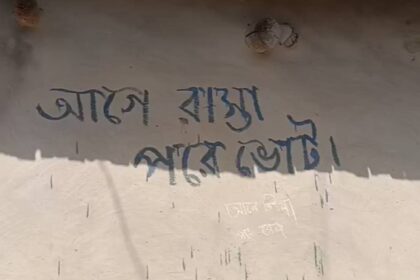 আগে রাস্তা
পরে ভোট।